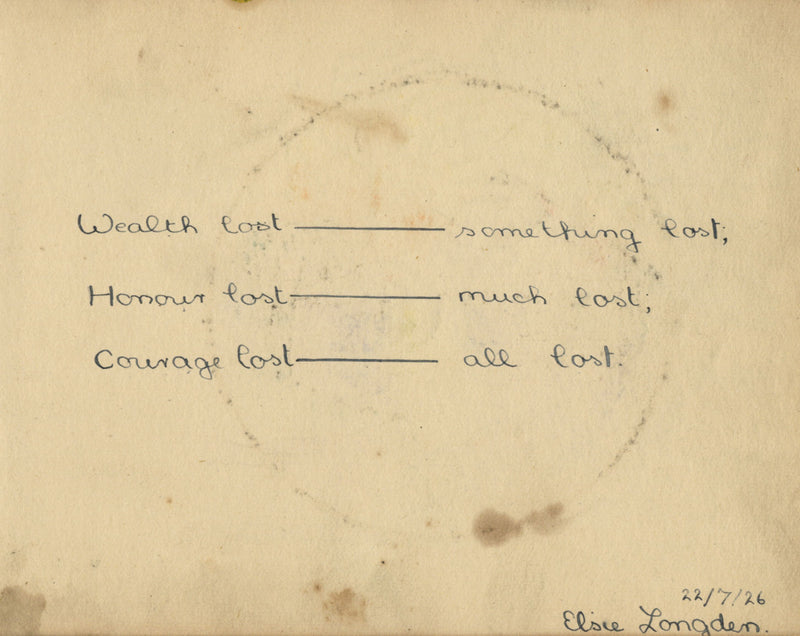 Wealth lost ——— something lost;
Honour lost ——— much lost;
Courage lost ——— all lost.
22/7/26
Elsie Longden.